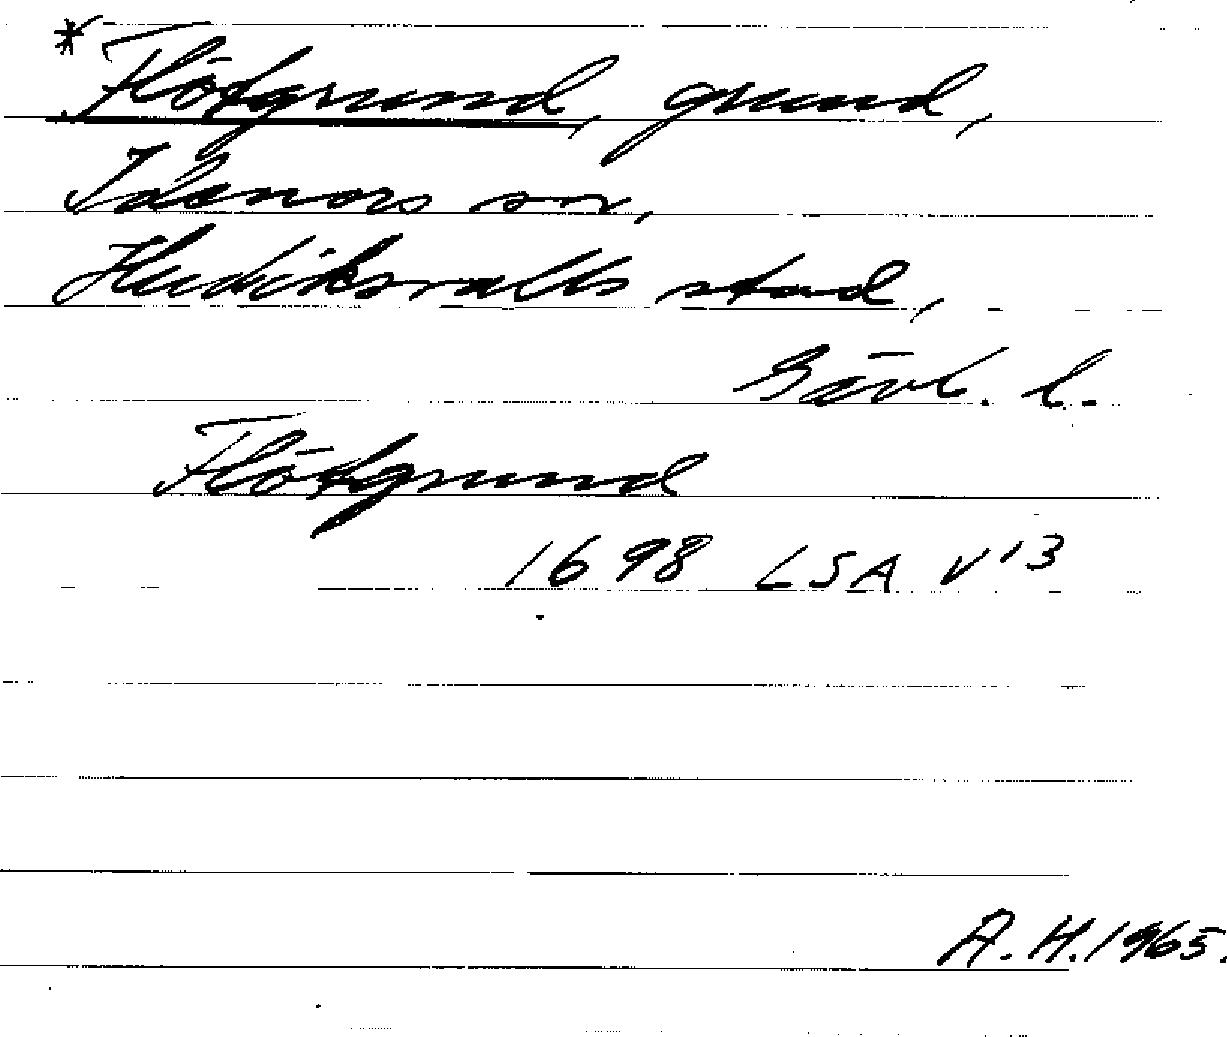 *Flötgrund, grund,
Idenors sn,
Hudiksvalls stad,
Gävl. l.
Flötgrund
1698 LSA V 13
A.H. 1965.